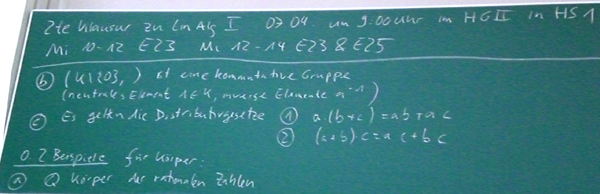 2te Klausur zu Lin Alg I 07.04. um 9:00 Uhr im HG II in HS 1
Mi 10-12 E23 Mi 12-14 E23 & E25
(b) (K\{0}, ·) ist eine kommutative Gruppe
(neutrales Element 1∈K, inverse Elemente a⁻¹)
(c) Es gelten die Distributivgesetze (1) a·(b+c)=ab+ac
(2) (a+b)c=ac+bc
0.2 Beispiele für Körper:
(a) Q Körper der rationalen Zahlen